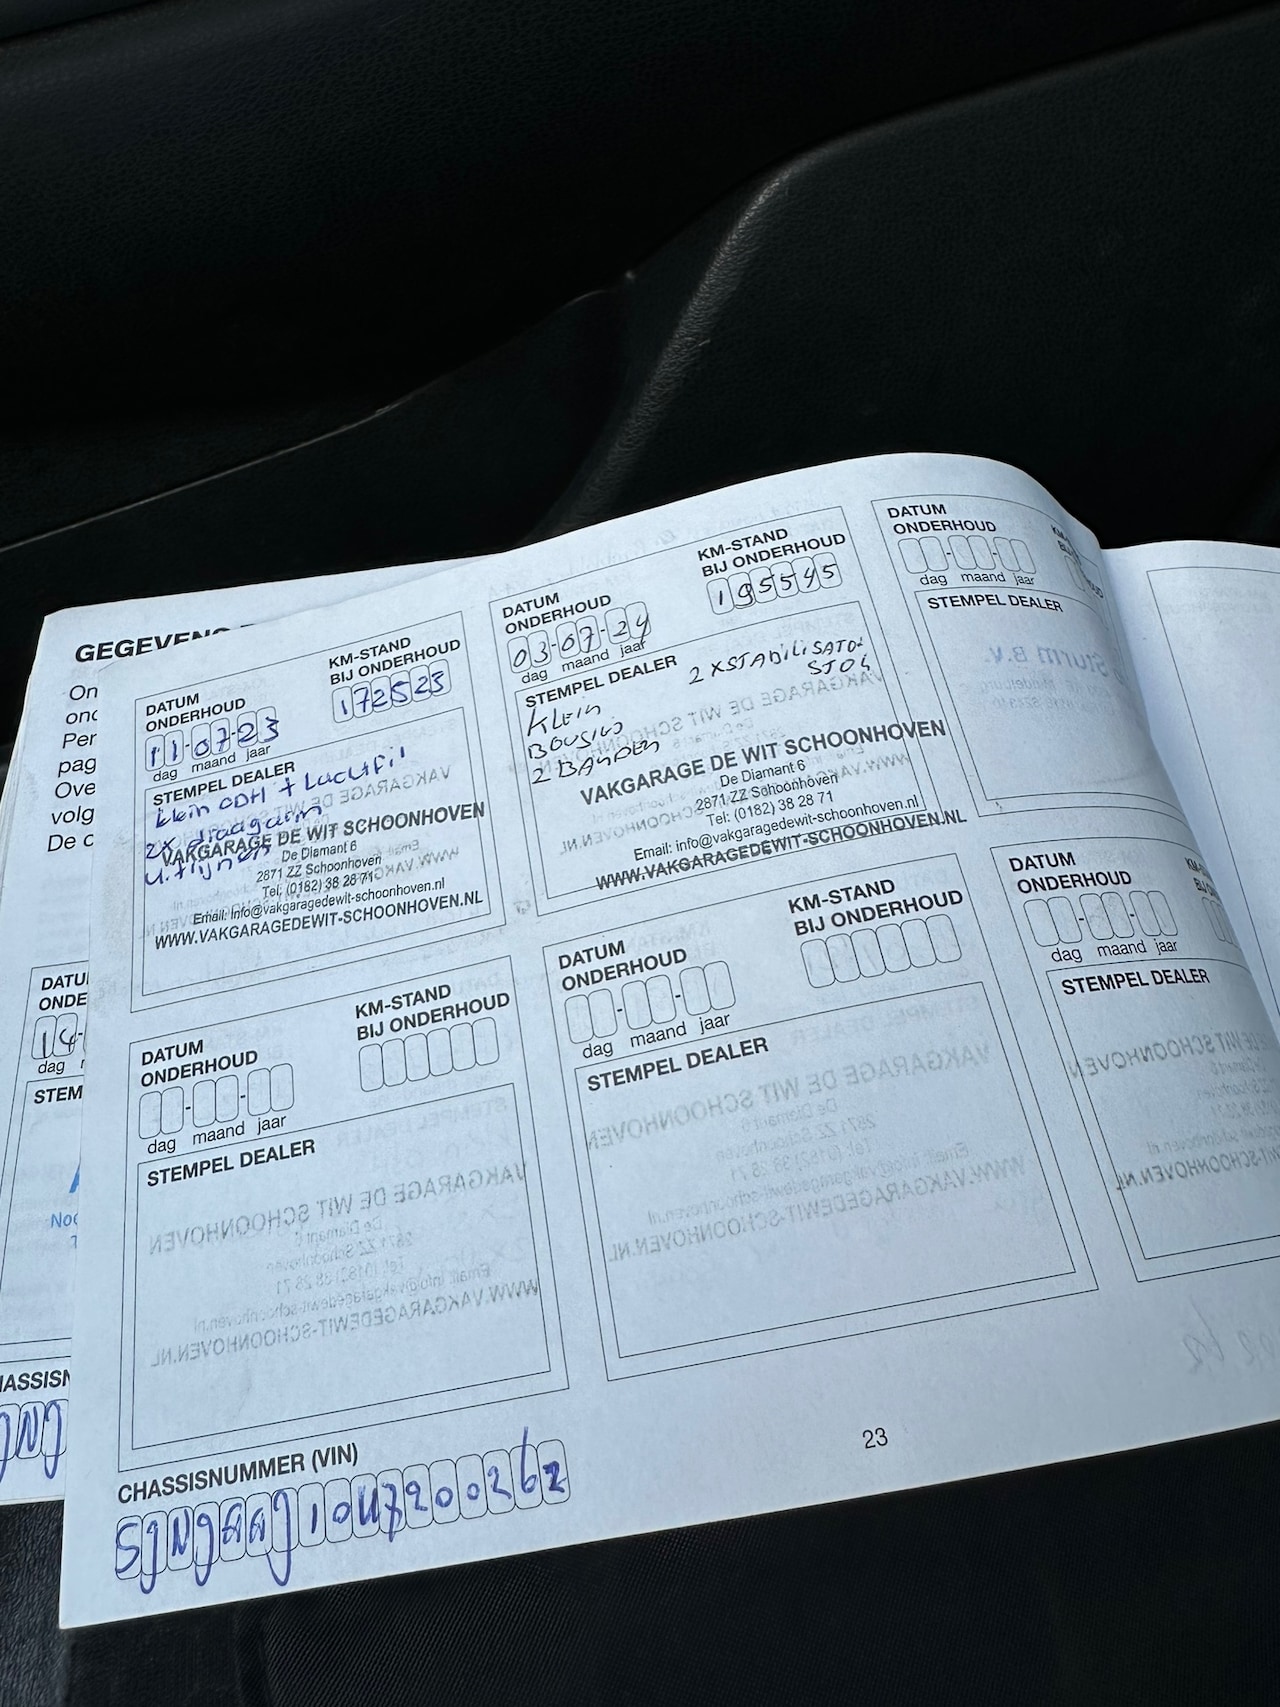 GEGEVENS
On
ond
Per
pag
Ove
volg
De c
DATUM
ONDERHOUD
11-07-23
dag maand jaar
KM-STAND
BIJ ONDERHOUD
172523
STEMPEL DEALER
klein ODH + Luchtfil
2x draagarm
uitlijnen
VAKGARAGE DE WIT SCHOONHOVEN
De Diamant 6
2871 ZZ Schoonhoven
Tel: (0182) 38 28 71
Email: info@vakgaragedewit-schoonhoven.nl
WWW.VAKGARAGEDEWIT-SCHOONHOVEN.NL
DATUM
ONDERHOUD
03-07-24
dag maand jaar
KM-STAND
BIJ ONDERHOUD
195545
STEMPEL DEALER
2 XSTABILISATOR
KLEIN
BOUGIES
2 BANDEN
VAKGARAGE DE WIT SCHOONHOVEN
De Diamant 6
2871 ZZ Schoonhoven
Tel: (0182) 38 28 71
Email: info@vakgaragedewit-schoonhoven.nl
WWW.VAKGARAGEDEWIT-SCHOONHOVEN.NL
DATUM
ONDERHOUD
dag maand jaar
STEMPEL DEALER
DATUM
ONDERHOUD
dag maand jaar
KM-STAND
BIJ ONDERHOUD
STEMPEL DEALER
DATUM
ONDERHOUD
dag maand jaar
KM-STAND
BIJ ONDERHOUD
STEMPEL DEALER
DATUM
ONDERHOUD
dag maand jaar
STEMPEL DEALER
DATU
ONDE
14-
dag
STEM
Noo
T
HASSISN
JNJ
CHASSISNUMMER (VIN)
SJNJAAJ10U7200262
23